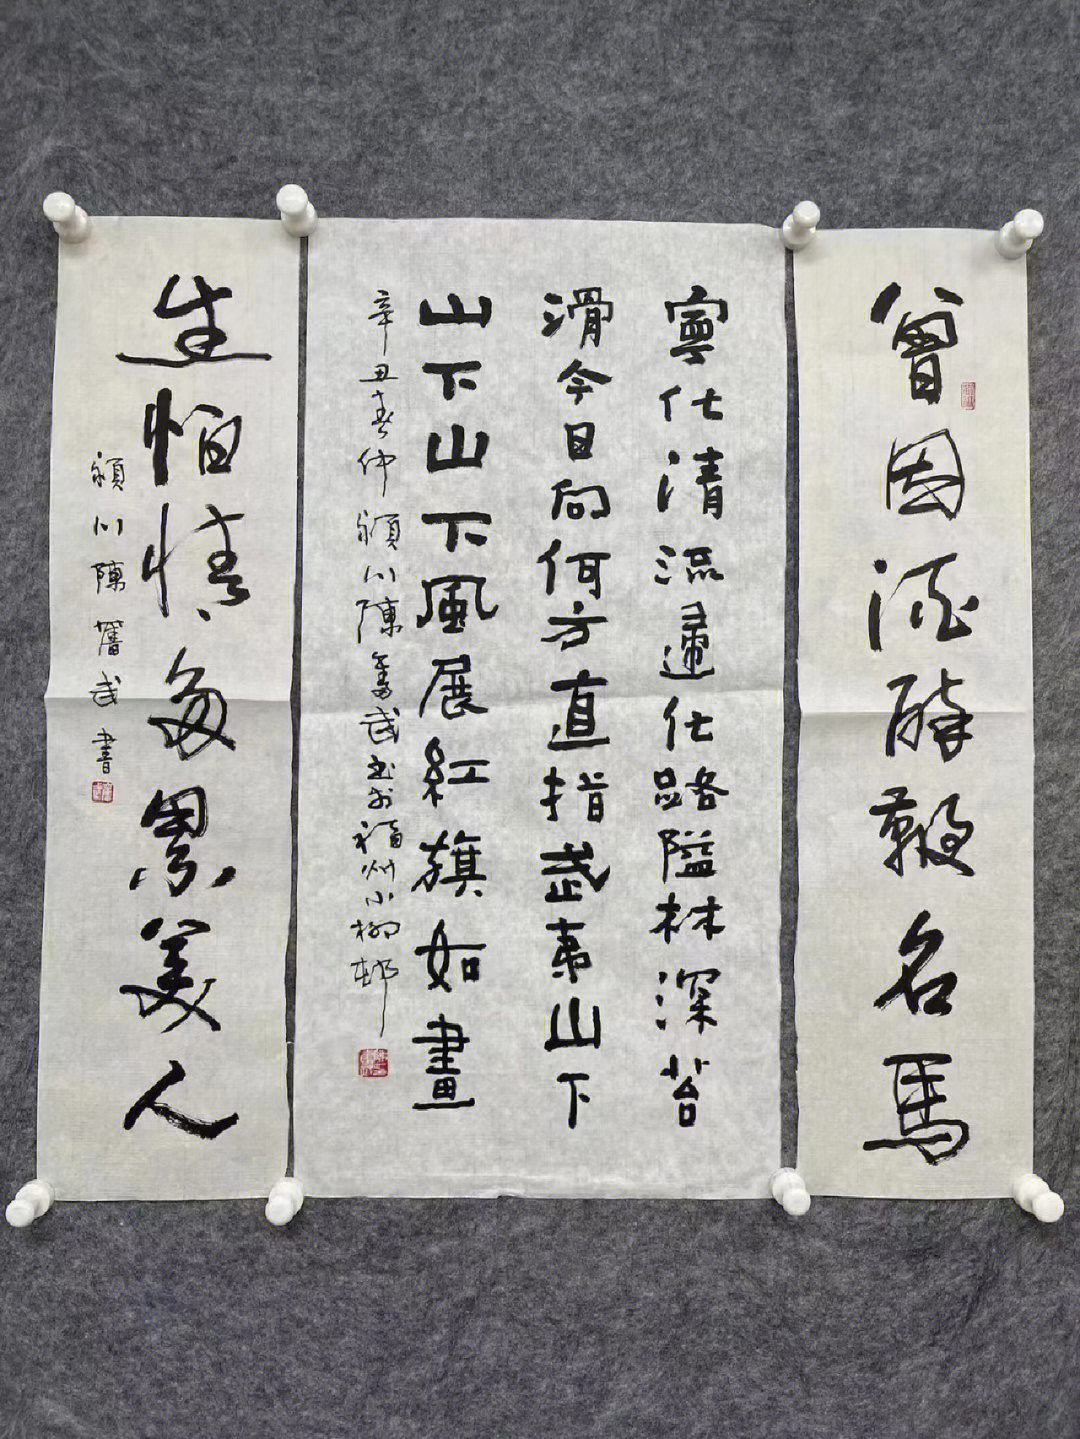 曾因酒醉鞭名馬
寧化清流歸化路隘林深苔
滑今日向何方直指武夷山下
山下山下風展紅旗如畫
辛丑春仲 潁川陳奮武書於福州小柳邨
生怕情多累美人
潁川陳奮武書